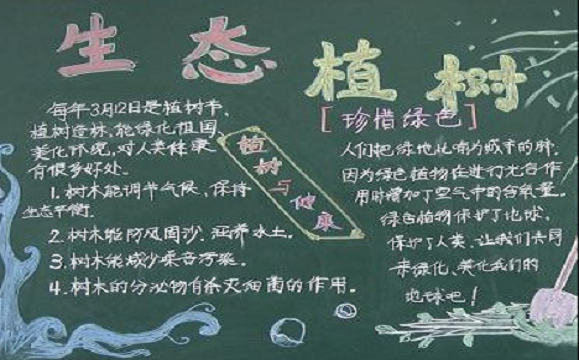 生态植树
每年3月12日是植树节,
植树造林,能绿化祖国,
美化环境,对人类健康
有很多好处。
1.树木能调节气候、保持
生态平衡.
2.树木能防风固沙、涵养水土。
3.树木能减少噪音污染。
4.树木的分泌物有杀灭细菌的作用。
植树与健康
[珍惜绿色]
人们把绿地比喻为城市的肺.
因为绿色植物在进行光合作
用时增加了空气中的含氧量。
绿色植物保护了地球,
保护了人类、让我们共同
来绿化、美化我们的
地球吧!